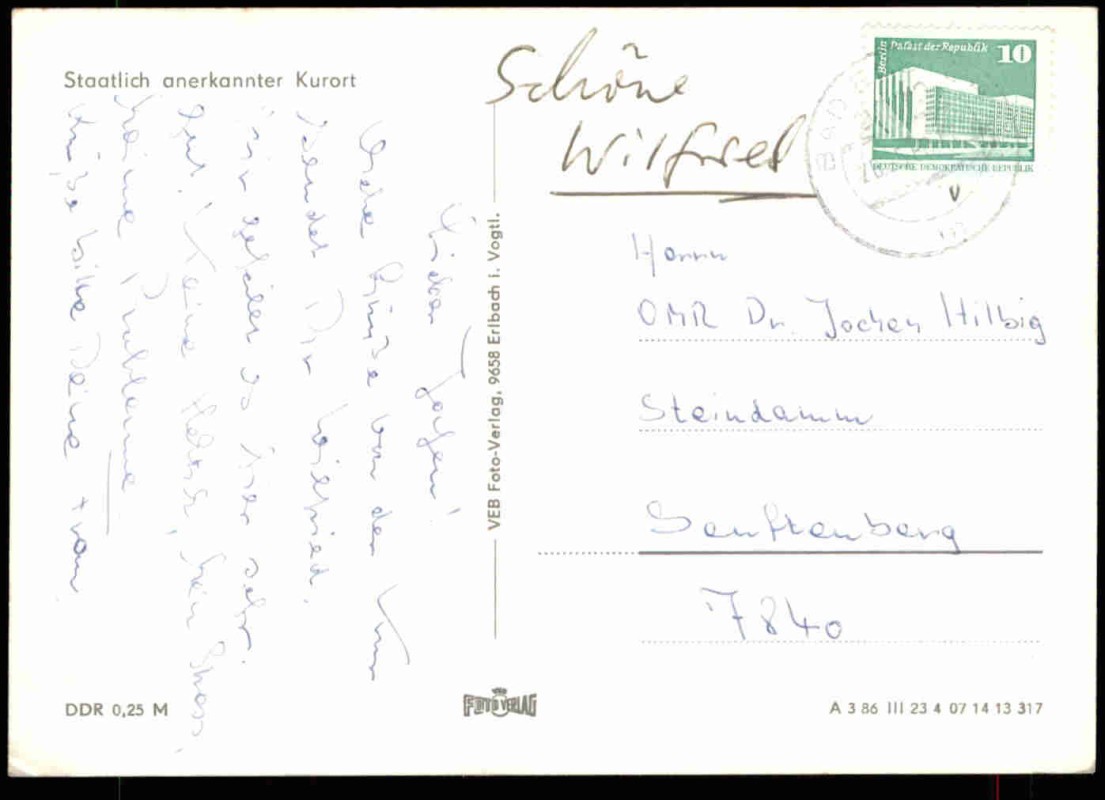 Staatlich anerkannter Kurort
Lieber Jochen!
Viele Grüße von der Kur
sendet Dir Wilfried.
mir gefällt es hier sehr
gut. Keine
keine Probleme
Grüße bitte Deine Frau
VEB Foto-Verlag, 9658 Erlbach i. Vogtl.
DDR 0,25 M
FOTO VERLAG
Schöne
Wilfried
Berlin Palast der Republik
10
DEUTSCHE DEMOKRATISCHE REPUBLIK
BAD
v
Herrn
OMR Dr. Jochen Hilbig
Steindamm
Senftenberg
7840
A 3 86 III 23 4 07 14 13 317